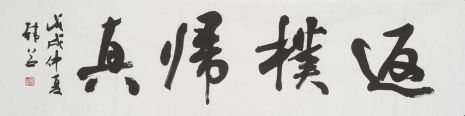 返樸歸真
戊戌仲夏